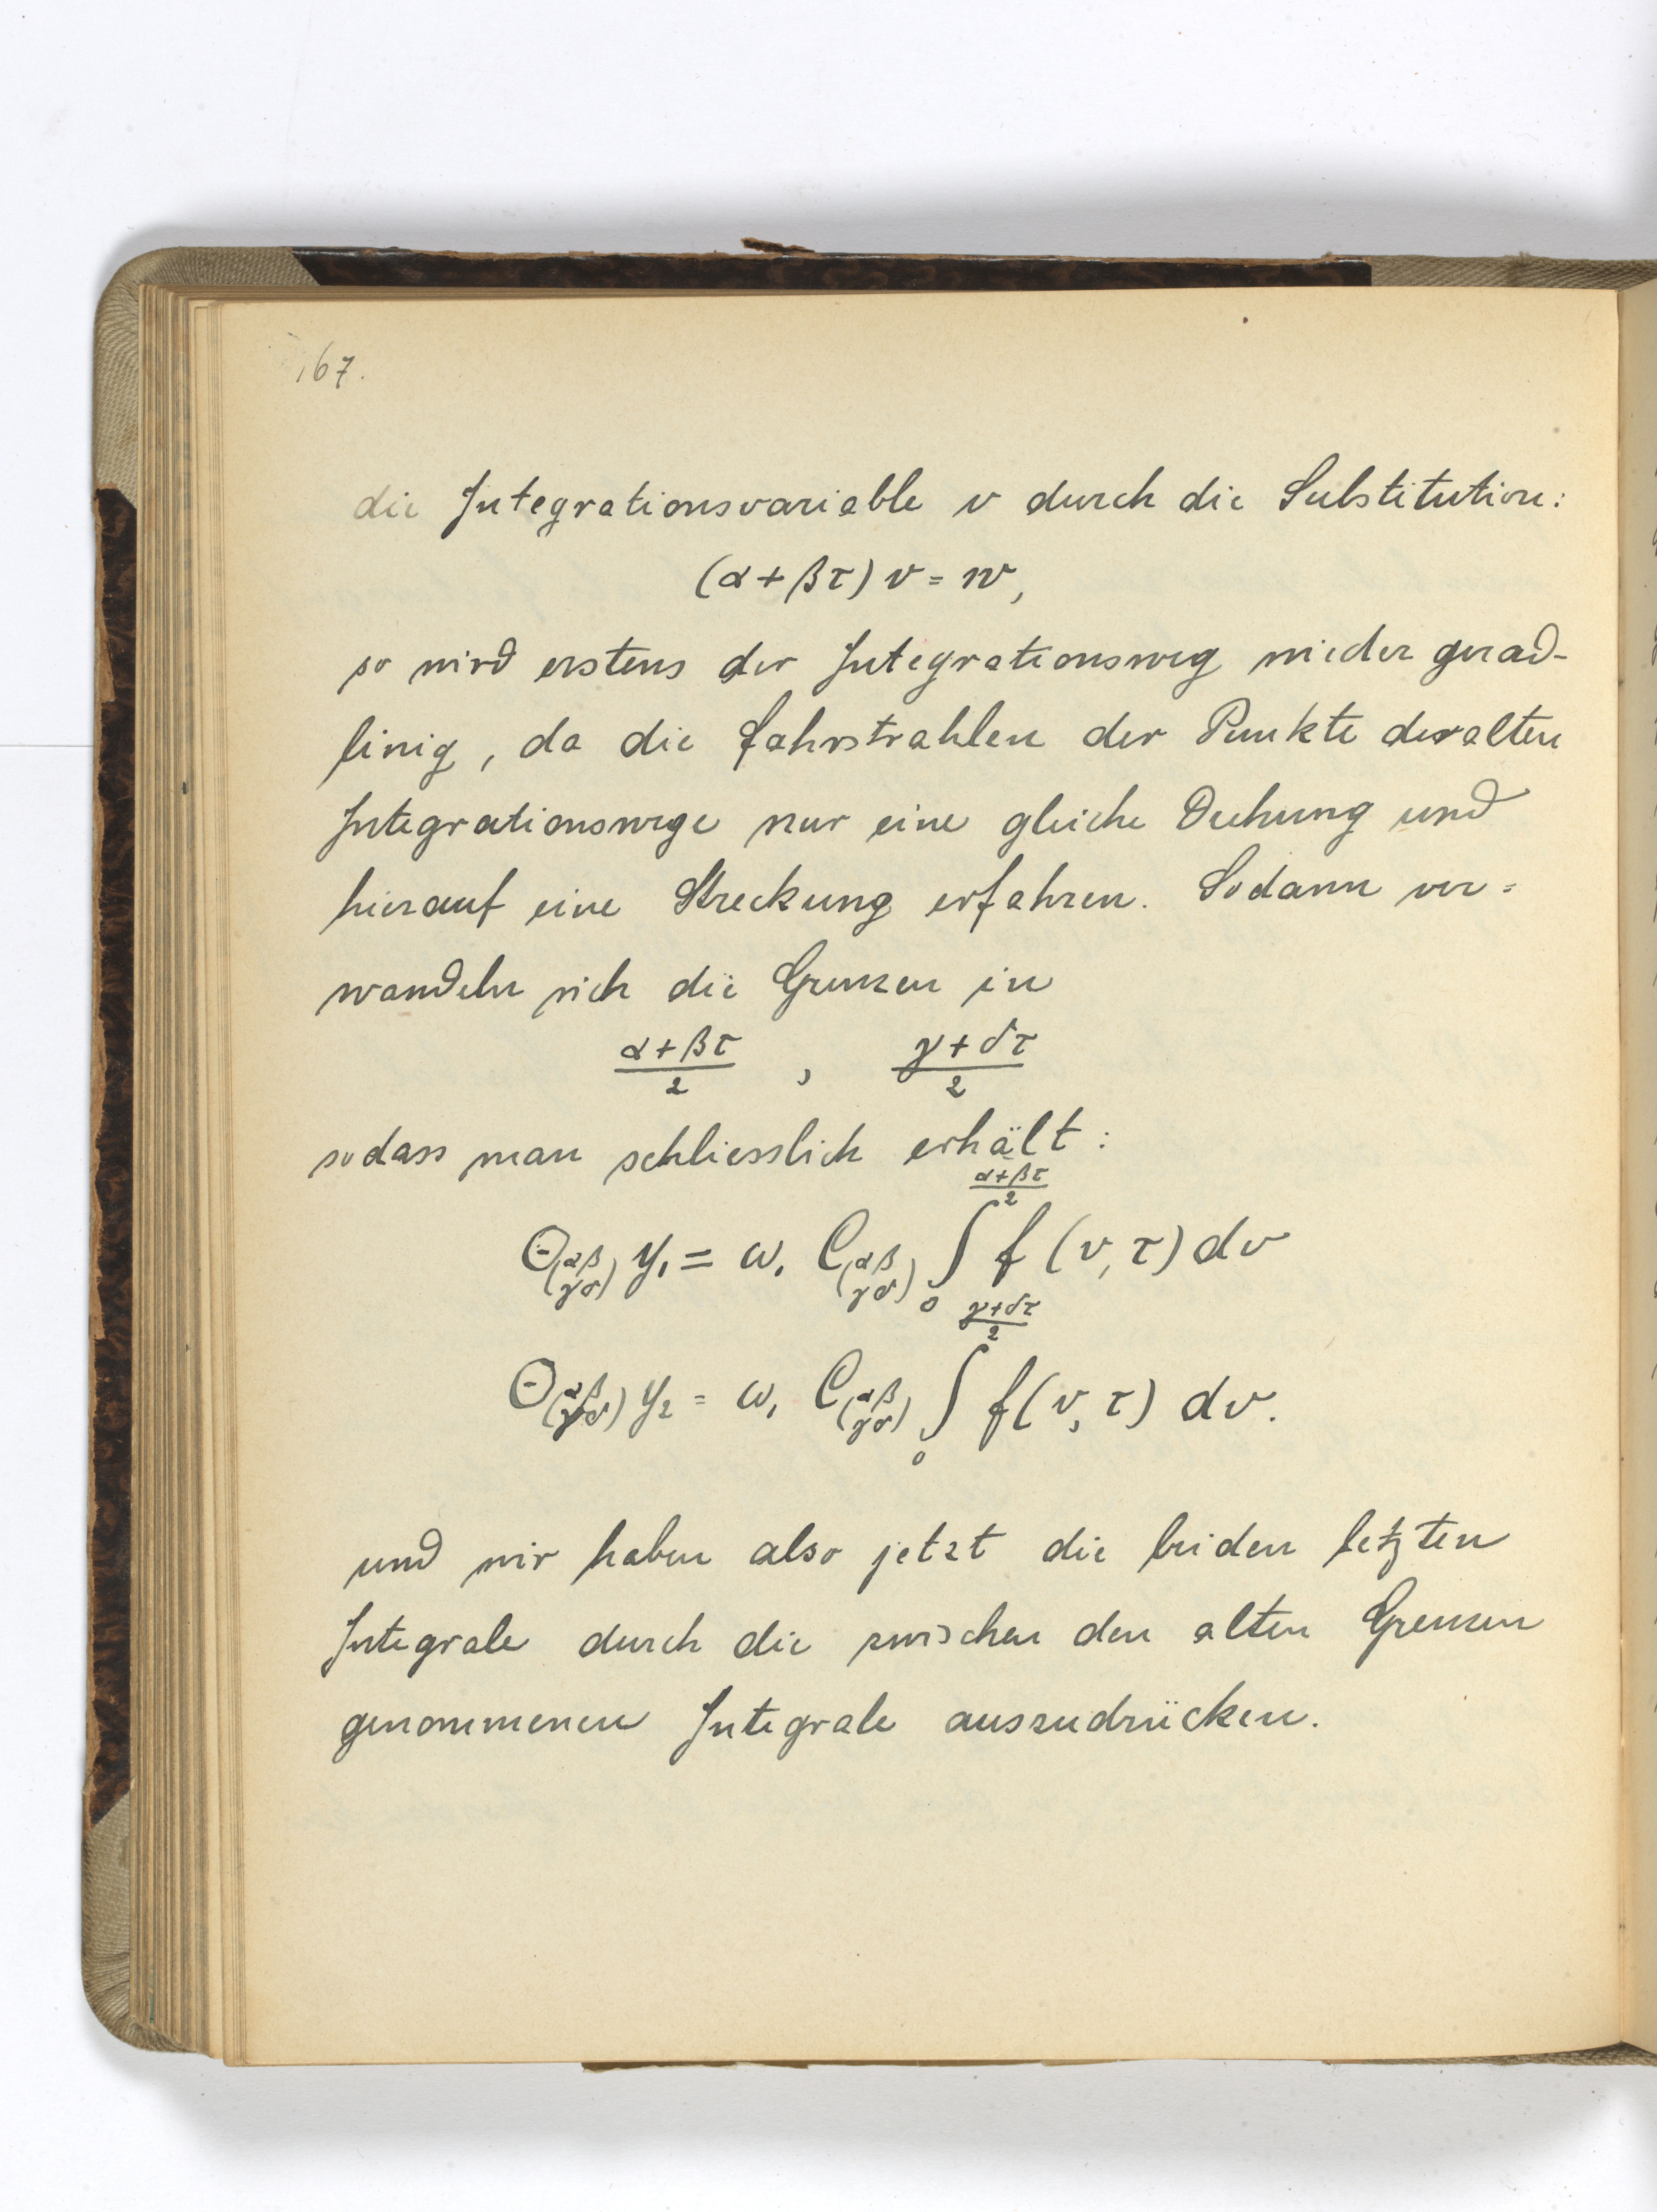 167.
die Integrationsvariable v durch die Substitution:
(α+βτ) v = w,
so wird erstens der Integrationsweg wieder gerad-
linig, da die Fahrstrahlen der Punkte der alten
Integrationswege nur eine gleiche Drehung und
hierauf eine Streckung erfahren. Sodann ver=
wandeln sich die Grenzen in
(α+βτ)/2 , (γ+δτ)/2
sodass man schliesslich erhält:
Θ_(αβ γδ) y₁ = ω₁ C_(αβ γδ) ∫_0^{(α+βτ)/2} f (v, τ) dv
Θ_(αβ γδ) y₂ = ω₁ C_(αβ γδ) ∫_0^{(γ+δτ)/2} f(v, τ) dv.
und wir haben also jetzt die beiden letzten
Integrale durch die zwischen den alten Grenzen
genommenen Integrale auszudrücken.